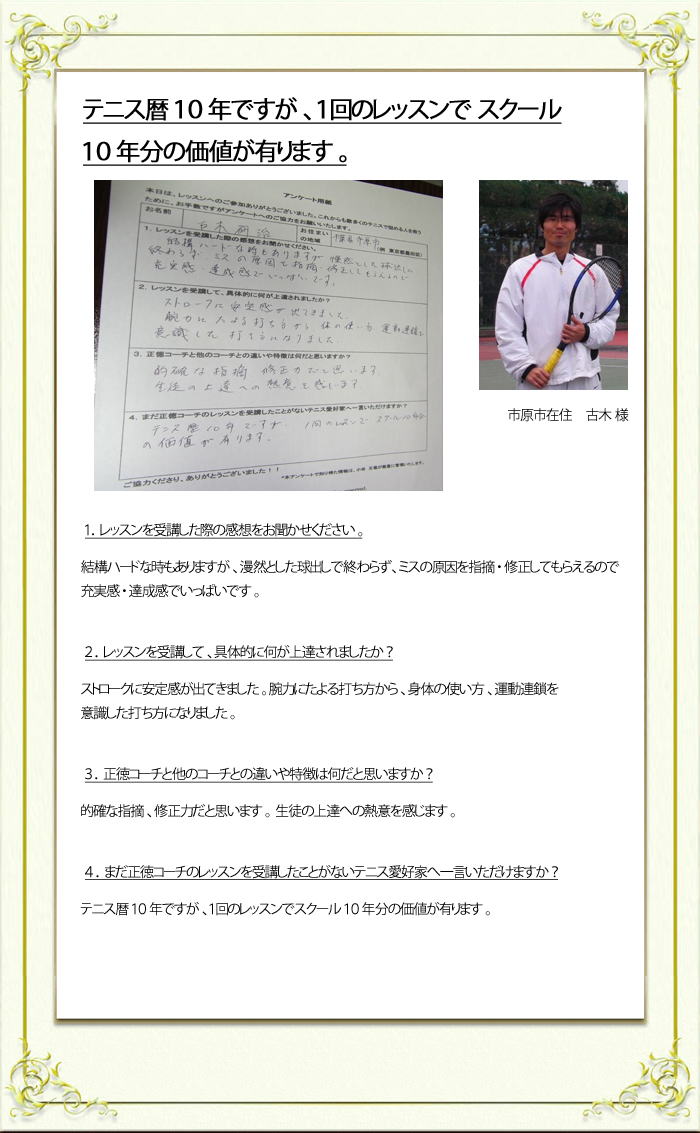 テニス暦10年ですが、1回のレッスンで スクール
10年分の価値が有ります。
アンケート用紙
本日は、レッスンへのご参加ありがとうございました。これからも数多くのテニスで悩める人を救う
ために、お手数ですがアンケートへのご協力をお願いいたします。
お名前
お住まい
の地域
(例 東京都墨田区)
1. レッスンを受講した際の感想をお聞かせください。
結構ハードな時もありますが 漫然とした球出しで
終わらず、ミスの原因を指摘・修正してもらえるので
充実感・達成感でいっぱいです。
2. レッスンを受講して、具体的に何が上達されましたか?
ストロークに安定感が出てきました。
腕力にたよる打ち方から 体の使い方、運動連鎖を
意識した打ち方になりました。
3. 正徳コーチと他のコーチとの違いや特徴は何だと思いますか?
的確な指摘 修正力だと思います。
生徒の上達への熱意を感じます。
4. まだ正徳コーチのレッスンを受講したことがないテニス愛好家へ一言いただけますか?
テニス歴10年ですが、1回のレッスンで スクール10年分
の価値が有ります。
ご協力くださり、ありがとうございました!!
市原市在住 古木 様
1. レッスンを受講した際の感想をお聞かせください。
結構ハードな時もありますが、漫然とした球出しで終わらず、ミスの原因を指摘・修正してもらえるので
充実感・達成感でいっぱいです。
2. レッスンを受講して、具体的に何が上達されましたか?
ストロークに安定感が出てきました。腕力にたよる打ち方から、身体の使い方、運動連鎖を
意識した打ち方になりました。
3. 正徳コーチと他のコーチとの違いや特徴は何だと思いますか?
的確な指摘、修正力だと思います。生徒の上達への熱意を感じます。
4. まだ正徳コーチのレッスンを受講したことがないテニス愛好家へ一言いただけますか?
テニス暦10年ですが、1回のレッスンでスクール10年分の価値が有ります。